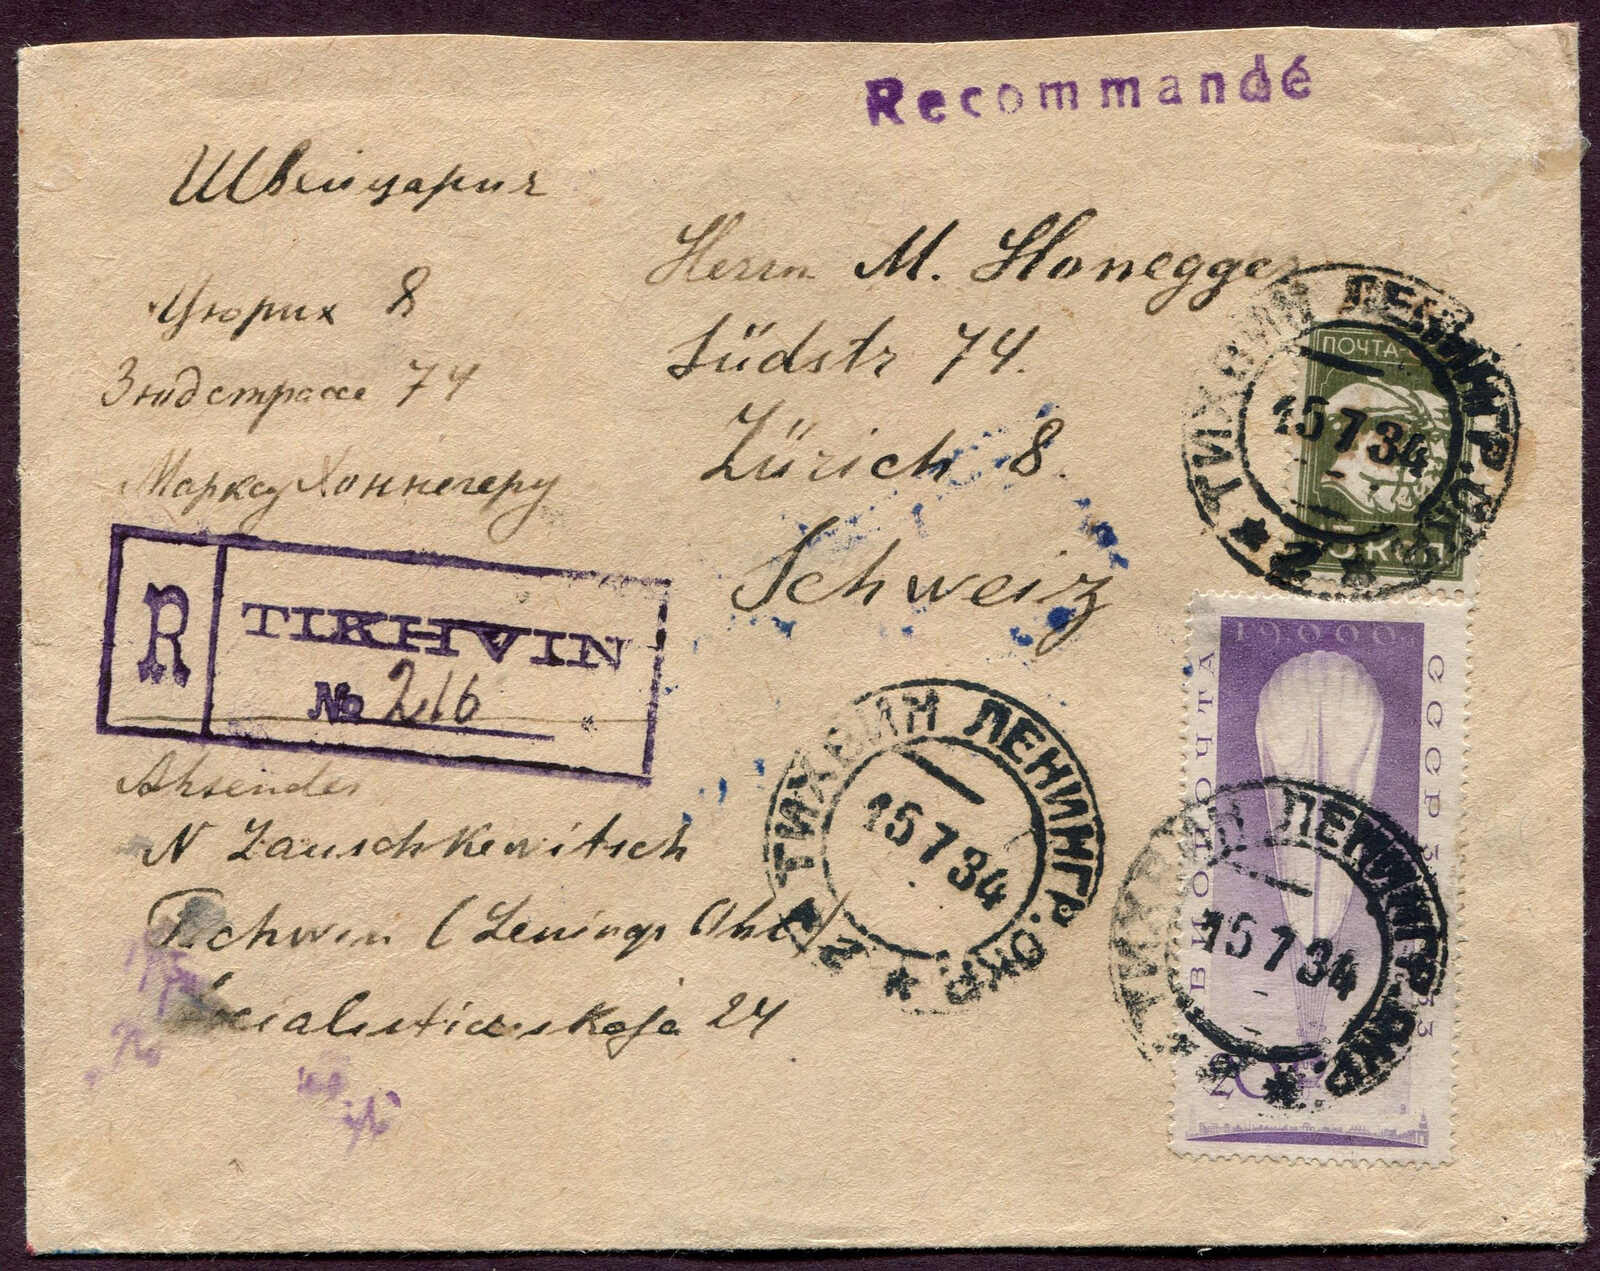 Recommandé
Швейцария
Цюрих 8
Зюдстрассе 74
Марку Хоннегеру
Herrn M. Honegger
Südstr 74.
Zürich 8.
Schweiz
R TIKHVIN
№ 216
Absender
N Zauschkewitsch
Tichwin (Leningr Obl.)
Socialisticeskaja 24
ТИХВИН ЛЕНИНГР. ОКР.
15 7 34
2
ПОЧТА
5 КОП
ТИХВИН ЛЕНИНГР. ОКР.
15 7 34
2
19000
ПОЧТА
СССР
20
ТИХВИН ЛЕНИНГР. ОКР.
15 7 34